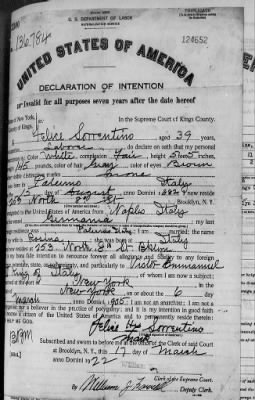 U. S. DEPARTMENT OF LABOR
NATURALIZATION SERVICE
No. 136,784
124652
UNITED STATES OF AMERICA
DECLARATION OF INTENTION
Invalid for all purposes seven years after the date hereof
State of New York,
County of Kings,
In the Supreme Court of Kings County.
I, Felice Sorrentino aged 39 years,
occupation Laborer do declare on oath that my personal
description is: Color White, complexion Fair, height 5 feet 5 inches,
weight 145 pounds, color of hair Gray, color of eyes Brown
other visible distinctive marks
I was born in Palermo Italy
on the day of August, anno Domini 1882; I now reside
at 253 North 8th St Brooklyn, N. Y.
I emigrated to the United States of America from Naples Italy
on the vessel Germania; my last
foreign residence was Palermo Italy; I am married; the name
of my wife is Rosina; she was born at Italy
and now resides at 253 North 8th St Bklyn
It is my bona fide intention to renounce forever all allegiance and fidelity to any foreign
prince, potentate, state, or sovereignty, and particularly to Victor Emmanuel
King of Italy, of whom I am now a subject;
I arrived at the port of New York
State of New York on or about the 6 day
of March anno Domini 1905; I am not an anarchist; I am not a
polygamist nor a believer in the practice of polygamy; and it is my intention in good faith
to become a citizen of the United States of America and to permanently reside therein:
SO HELP ME GOD.
Felice Sorrentino
Subscribed and sworn to before me at the office of the Clerk of said Court
at Brooklyn, N. Y., this 17 day of March
anno Domini 1922
[SEAL]
Clerk of the Supreme Court.
By William J. Deputy Clerk.